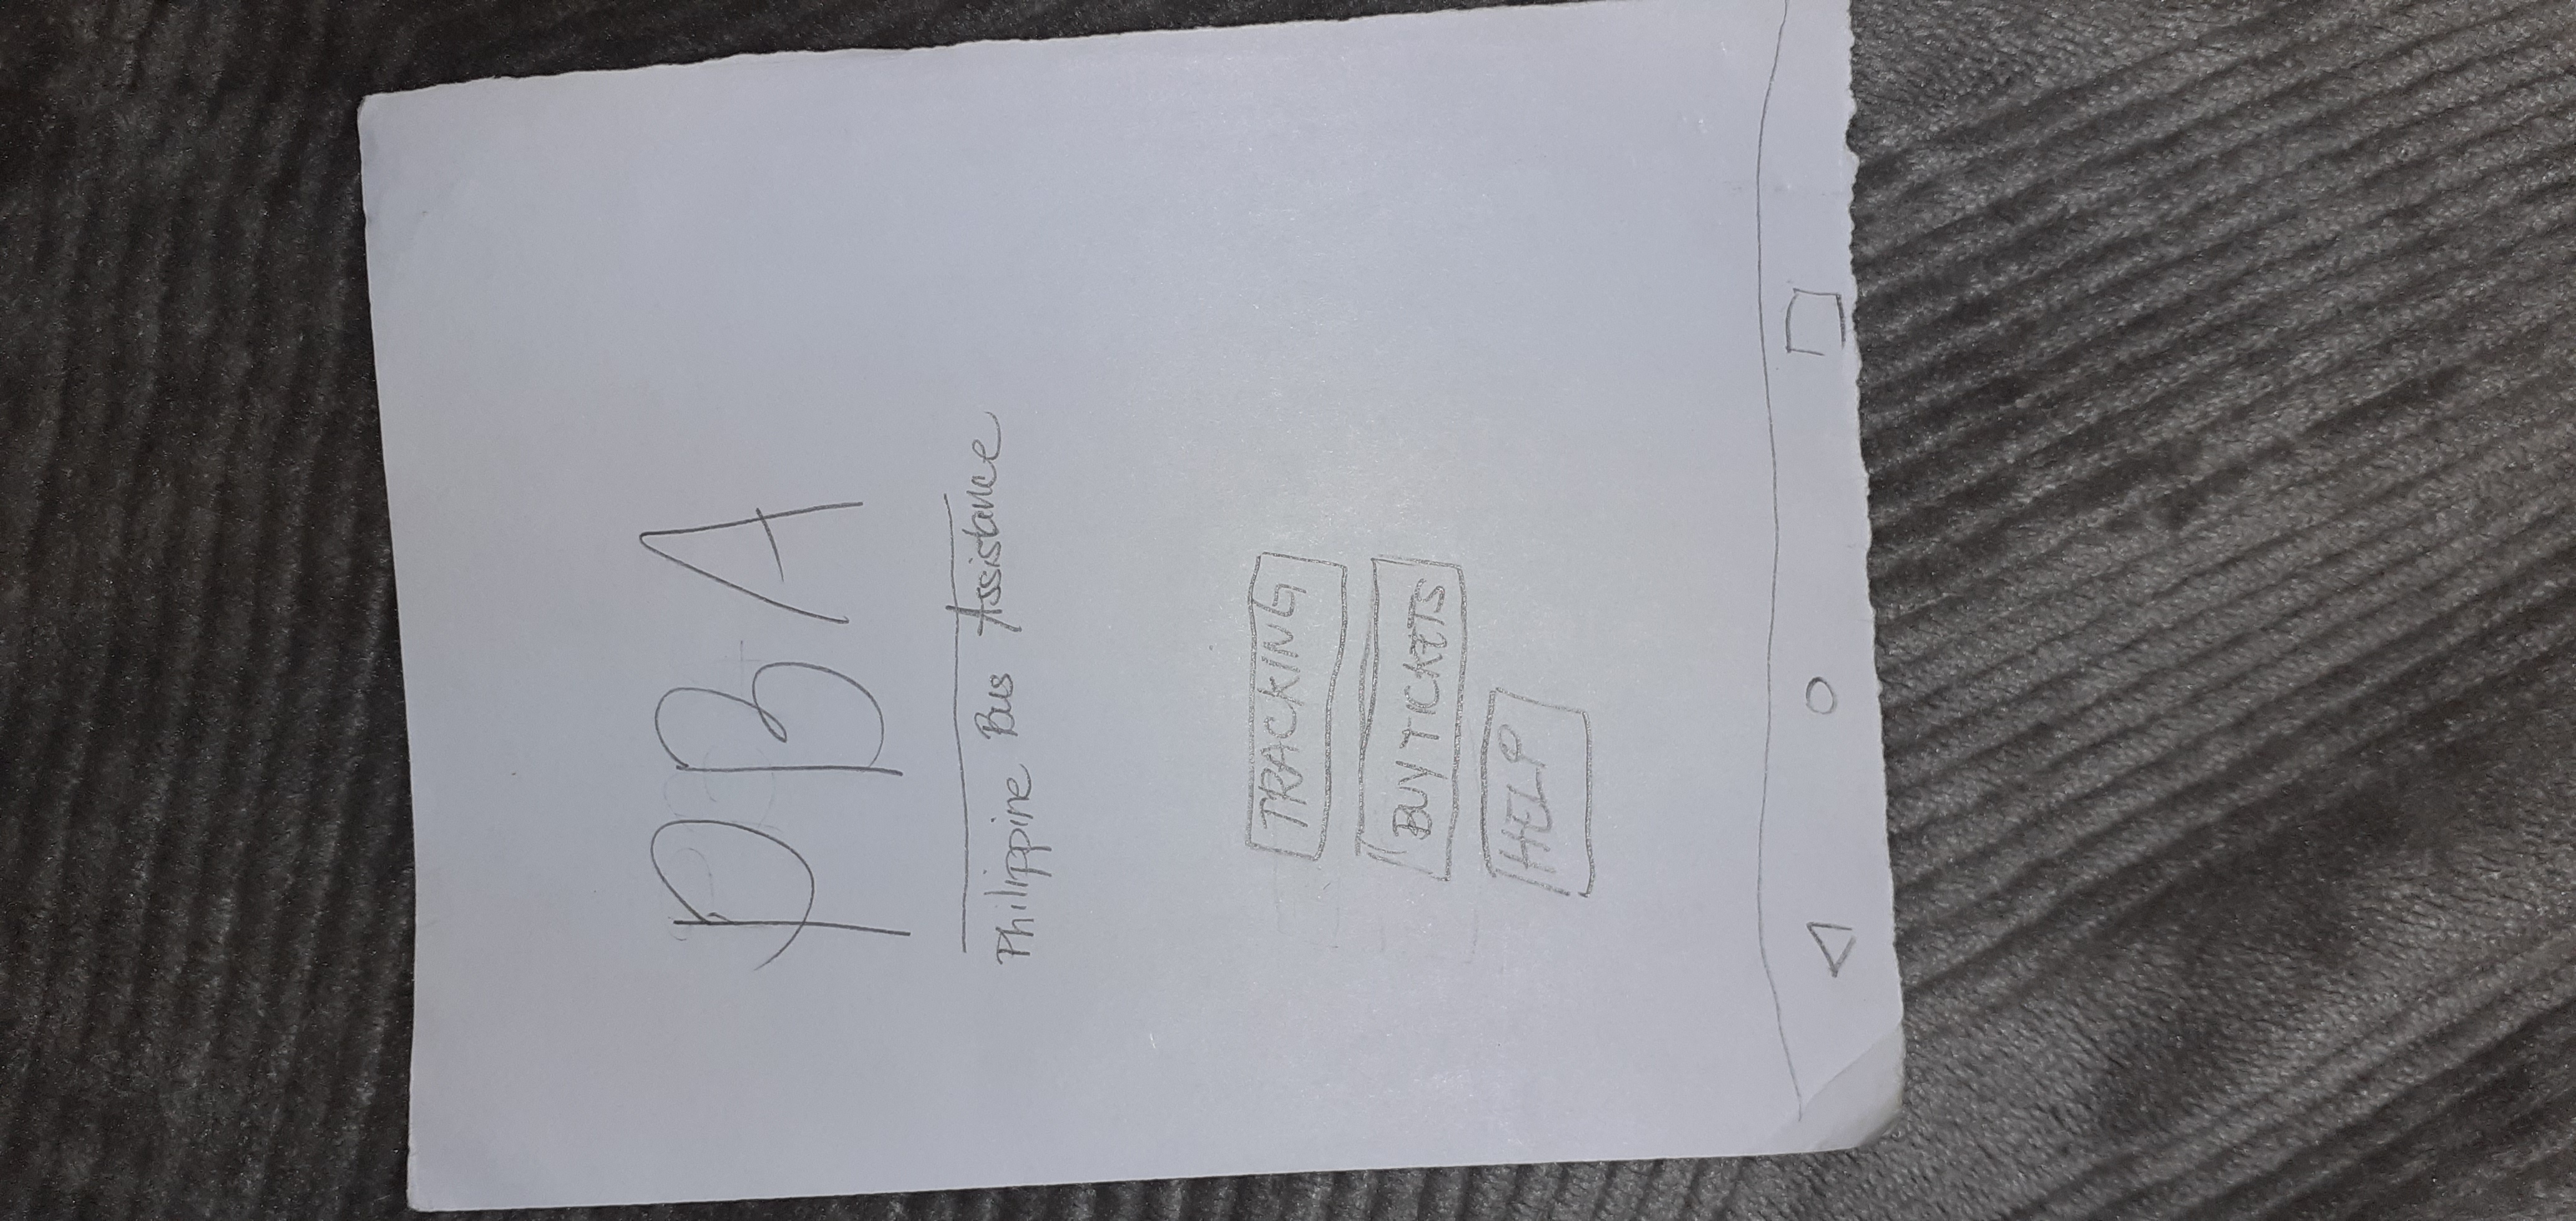 PBA
Philippine Bus Assistance
TRACKING
BUY TICKETS
HELP